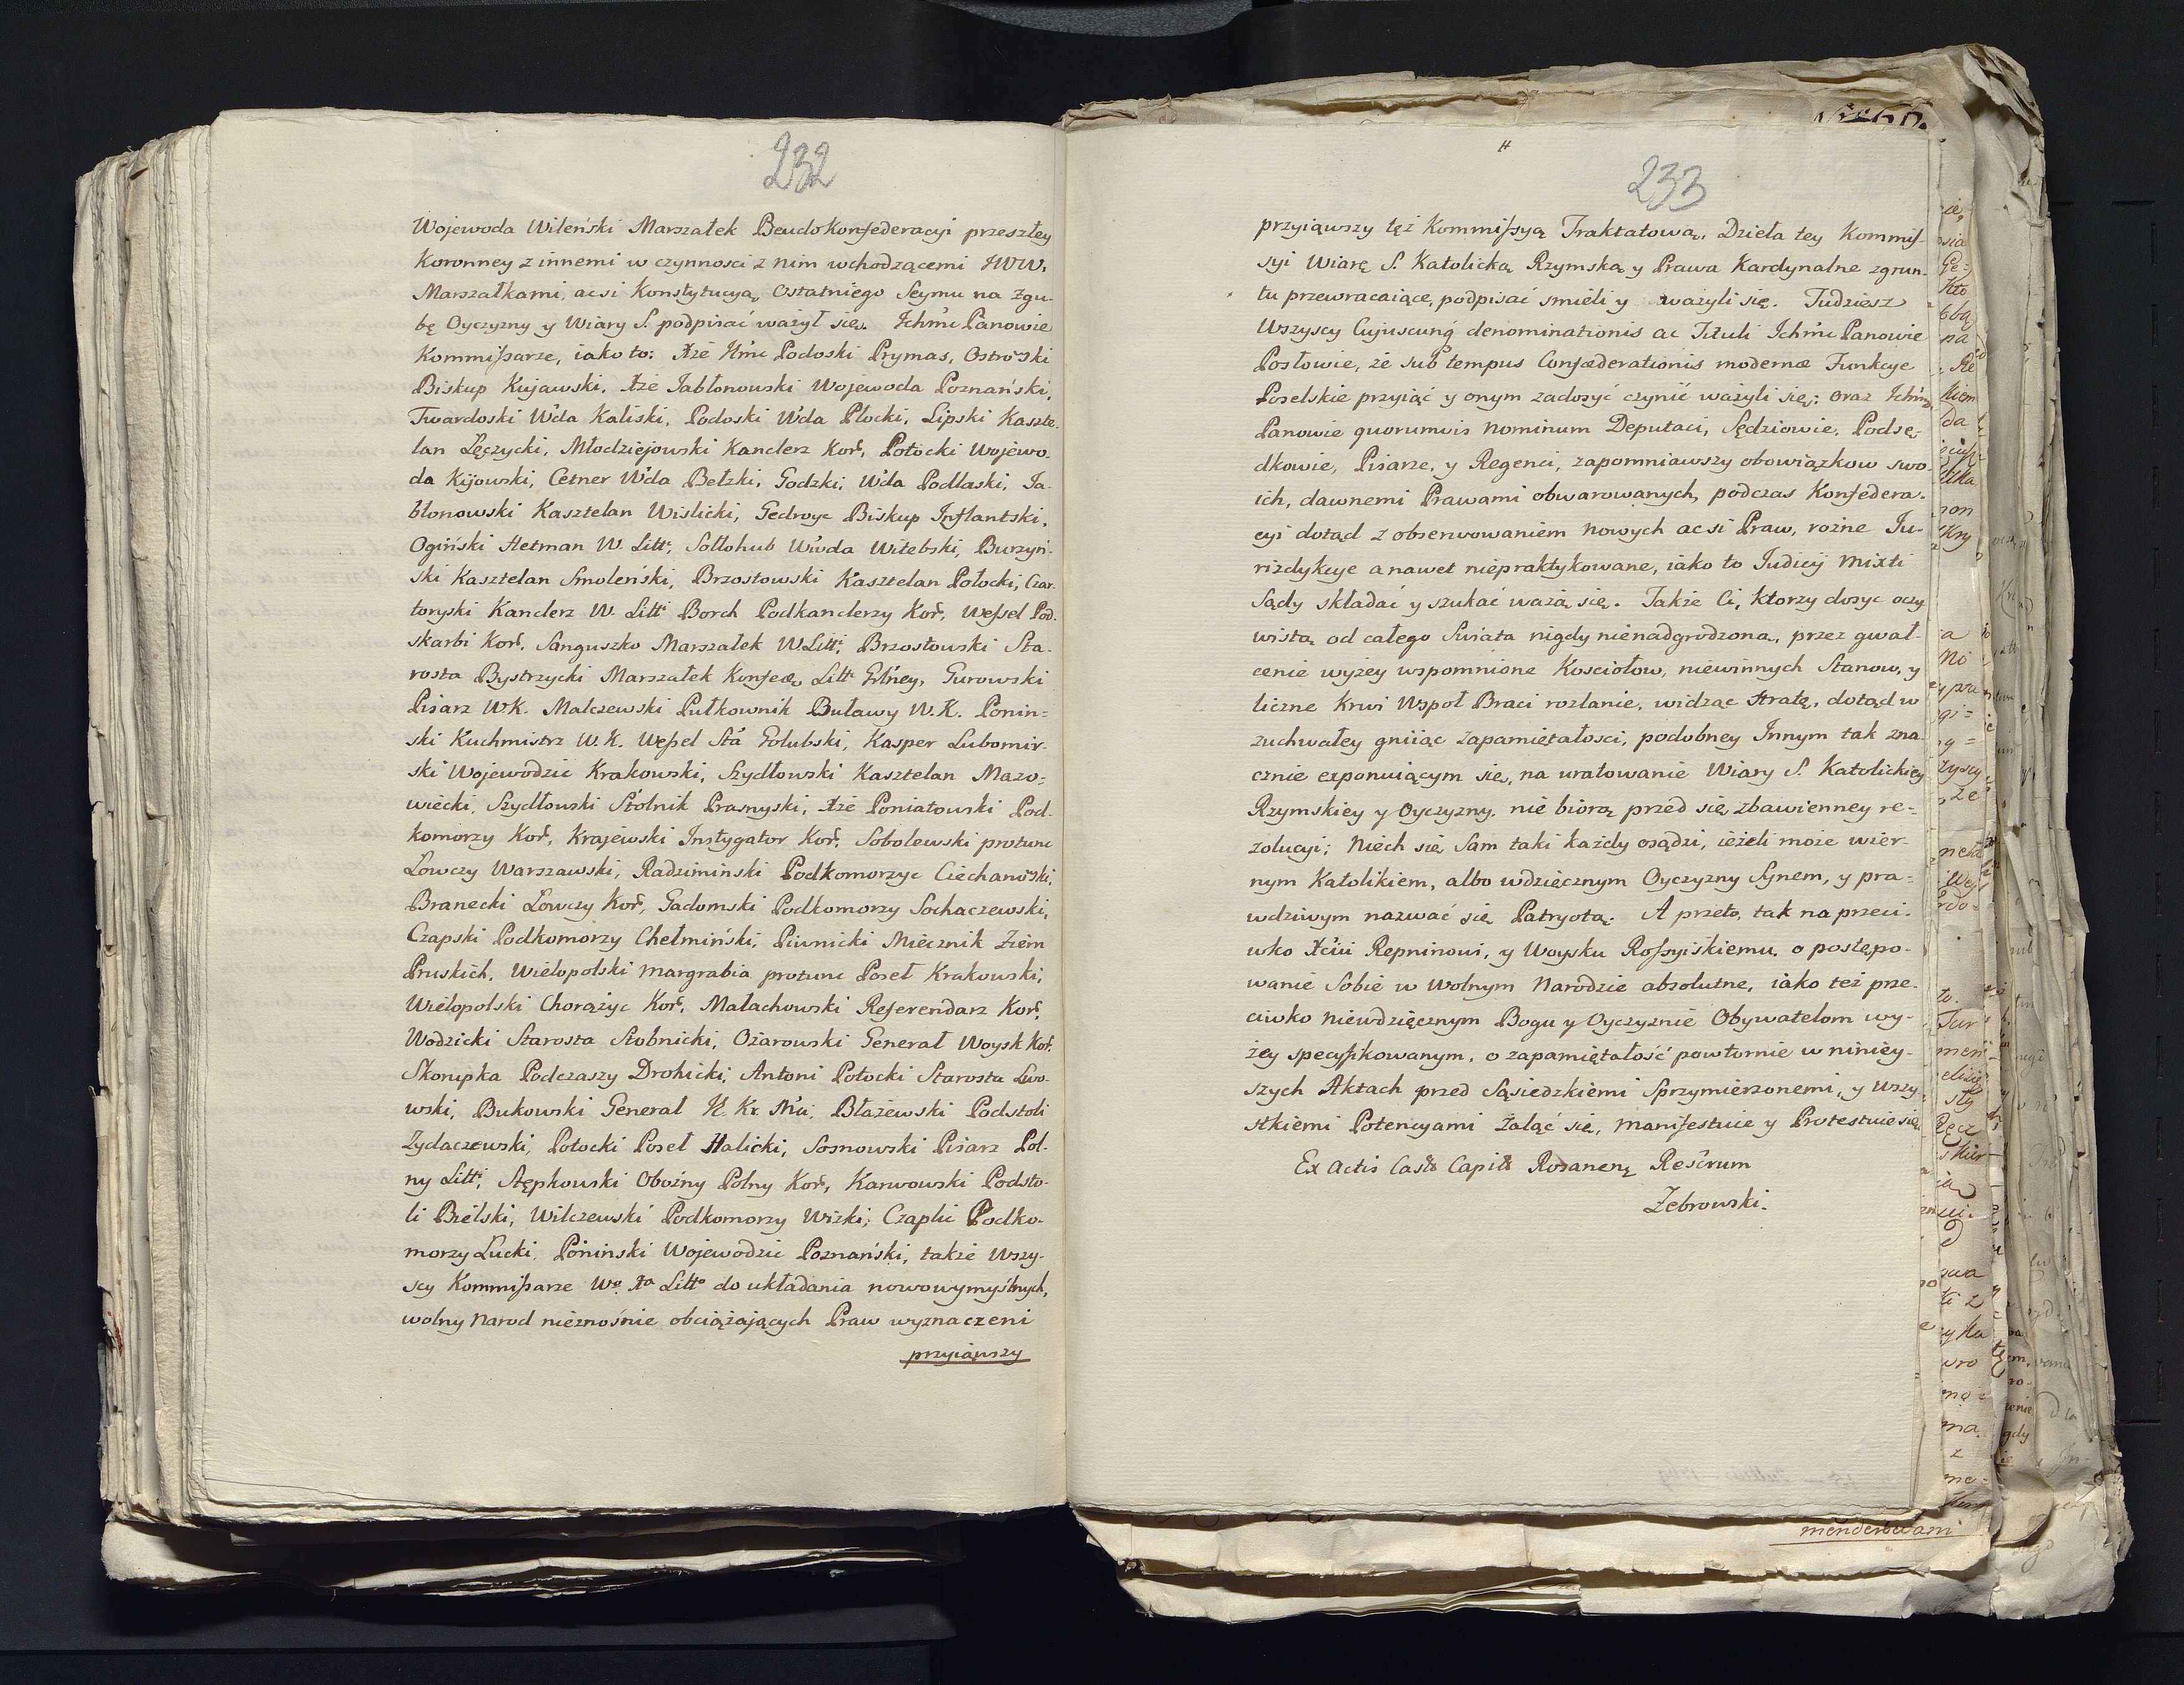 232
Wojewoda Wileński Marszałek Pseudokonfederacyi przeszłey
Koronney z innemi w czynnosci z nim wchodzącemi JWW.
Marszałkami, acsi Konstytucyą ostatniego Seymu na zgu-
bę Oyczyzny y Wiary S. podpisać ważył się. Ichmc Panowie
Kommissarze, iako to: Xże Jmc Podoski Prymas, Ostroski
Biskup Kujawski, Xże Jabłonowski Wojewoda Poznański,
Twardoski Wda Kaliski, Podoski Wda Płocki, Lipski Kaszte-
lan Lęczycki, Młodziejowski Kanclerz Kor, Potocki Wojewo-
da Kijowski, Cetner Wda Bełzki, Godzki, Wda Podlaski, Ja-
błonowski Kasztelan Wislicki, Gedroyc Biskup Inflantski,
Ogiński Hetman W. Litt, Sołłohub Wwda Witebski, Burzyń-
ski Kasztelan Smoleński, Brzostowski Kasztelan Połocki, Czar-
toryski Kanclerz W. Litt Borch Podkanclerzy Kor, Wessel Pod-
skarbi Kor, Sanguszko Marszałek W Litt, Brzostowski Sta-
rosta Bystrzycki Marszałek Konfed. Litt Gńey, Gurowski
Pisarz WK. Malczewski Pułkownik Buławy W.K. Ponin=
ski Kuchmistrz W.K. Wessel Sta Golubski, Kasper Lubomir-
ski Wojewodzic Krakowski, Szydłowski Kasztelan Mazo=
wiecki, Szydłowski Stolnik Prasnyski, Xże Poniatowski Pod-
komorzy Kor, Krajewski Instygator Kor, Sobolewski protunc
Łowczy Warszawski, Radziminski Podkomorzyc Ciechanoski,
Branecki Łowczy Kor, Gadomski Podkomorzy Sochaczewski,
Czapski Podkomorzy Chełmiński, Piwnicki Miecznik Ziem
Pruskich, Wielopolski Margrabia protunc Poseł Krakowski,
Wielopolski Chorążyc Kor, Małachowski Referendarz Kor,
Wodzicki Starosta Stobnicki, Ożarowski Generał Woysk Kor,
Skorupka Podczaszy Drohicki, Antoni Potocki Starosta Lwo-
wski, Bukowski Generał
Błażewski Podstoli
Zydaczewski, Potocki Poseł Halicki, Sosnowski Pisarz Pol-
ny Litt, Stępkowski Oboźny Polny Kor, Karwowski Podsto-
li Bielski, Wilczewski Podkomorzy Wizki, Czaplic Podko-
morzy Lucki, Poninski Wojewodzic Poznański, także Wszy-
scy Kommissarze Wo Xa Litto do układania nowowymyślnych,
wolny Narod nieznośnie obciążających Praw wyznaczeni
przyiąwszy
233
przyiąwszy tęż Kommissyą Traktatową, Dzieła tey Kommis-
syi Wiarę S. Katolicką Rzymską y Prawa Kardynalne zgrun-
tu przewracaiące, podpisać smieli y ważyli się. Tudziesz
Wszyscy Cujuscunq denominationis ac Tituli Ichmc Panowie
Posłowie, że sub tempus Confœderationis modernæ Funkcye
Poselskie przyiąć y onym zadosyć czynić ważyli się; oraz Ichmc
Panowie quorumvis Nominum Deputaci, Sędziowie, Podsę-
dkowie, Pisarze, y Regenci, zapomniawszy obowiązkow swo-
ich, dawnemi Prawami obwarowanych, podczas Konfedera-
cyi dotąd z obserwowaniem nowych acsi Praw, rożne Ju-
rizdykcye a nawet niepraktykowane, iako to Judicij Mixti
Sądy składać y szukać ważą się. Także Ci, ktorzy dosyc oczy
wistą od całego Swiata nigdy nienadgrodzoną, przez gwał-
cenie wyżey wspomnione Kosciołow, niewinnych Stanow, y
liczne Krwi Wspoł Braci rozlanie, widząc Stratę, dotąd w
zuchwałey gniiąc zapamiętałosci, podobney Innym tak zna-
cznie exponuiącym się, na uratowanie Wiary S. Katolickiey
Rzymskiey y Oyczyzny, nie biorą przed się zbawienney re-
zolucyi; Niech się Sam taki każdy osądzi, ieżeli może wier-
nym Katolikiem, albo wdzięcznym Oyczyzny Synem, y pra=
wdziwym nazwać się Patryotą. A przeto, tak na przeci-
wko Xciu Repninowi, y Woysku Rossyiskiemu, o postępo-
wanie Sobie w Wolnym Narodzie absolutne, iako też prze-
ciwko Niewdzięcznym Bogu y Oyczyznie Obywatelom wy-
żey specyfikowanym, o zapamiętałość powtornie w niniey-
szych Aktach przed Sąsiedzkiemi Sprzymierzonemi, y Wszy-
stkiemi Potencyami żaląć się, manifestuie y Protestuie się
Ex Actis Castr Capit Rozanen Rescrum
Zebrowski.